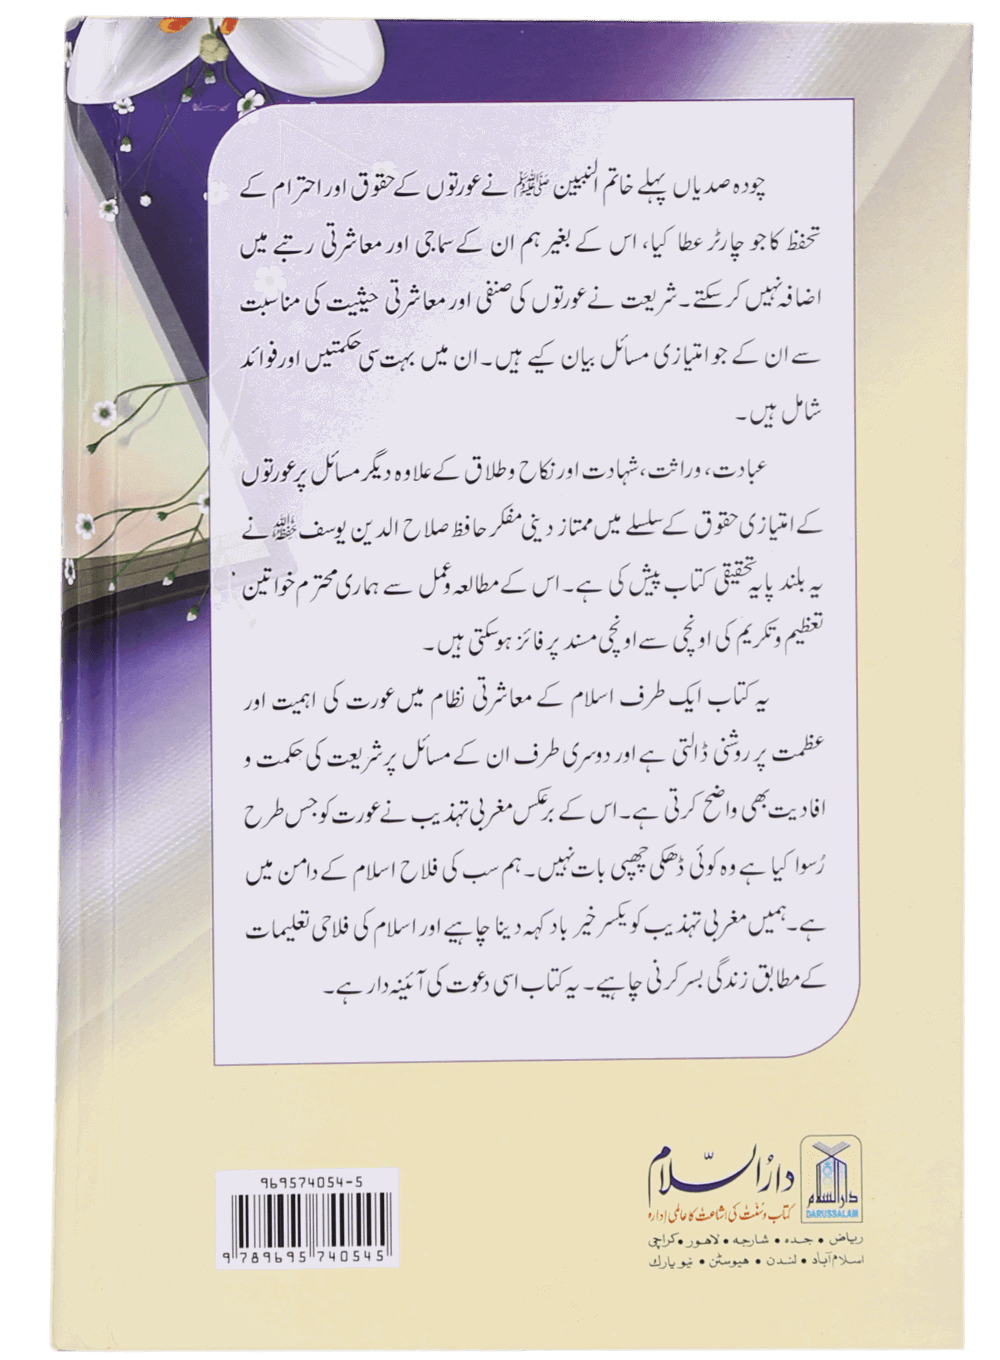 چودہ صدیاں پہلے خاتم النبیین ﷺ نے عورتوں کے حقوق اور احترام کے
تحفظ کا جو چارٹر عطا کیا، اس کے بغیر ہم ان کے سماجی اور معاشرتی رتبے میں
اضافہ نہیں کر سکتے۔ شریعت نے عورتوں کی صنفی اور معاشرتی حیثیت کی مناسبت
سے ان کے جو امتیازی مسائل بیان کیے ہیں۔ ان میں بہت سی حکمتیں اور فوائد
شامل ہیں۔
عبادت، وراثت، شہادت اور نکاح و طلاق کے علاوہ دیگر مسائل پر عورتوں
کے امتیازی حقوق کے سلسلے میں ممتاز دینی مفکر حافظ صلاح الدین یوسف حفظہ اللہ نے
یہ بلند پایہ تحقیقی کتاب پیش کی ہے۔ اس کے مطالعہ و عمل سے ہماری محترم خواتین
تعظیم و تکریم کی اونچی سے اونچی مسند پر فائز ہو سکتی ہیں۔
یہ کتاب ایک طرف اسلام کے معاشرتی نظام میں عورت کی اہمیت اور
عظمت پر روشنی ڈالتی ہے اور دوسری طرف ان کے مسائل پر شریعت کی حکمت و
افادیت بھی واضح کرتی ہے۔ اس کے برعکس مغربی تہذیب نے عورت کو جس طرح
رُسوا کیا ہے وہ کوئی ڈھکی چھپی بات نہیں۔ ہم سب کی فلاح اسلام کے دامن میں
ہے۔ ہمیں مغربی تہذیب کو یکسر خیر باد کہہ دینا چاہیے اور اسلام کی فلاحی تعلیمات
کے مطابق زندگی بسر کرنی چاہیے۔ یہ کتاب اسی دعوت کی آئینہ دار ہے۔
دارالسلام
دارالسلام
DARUSSALAM
کتاب و سنت کی اشاعت کا عالمی ادارہ
ریاض • جدہ • شارجہ • لاہور • کراچی
اسلام آباد • لندن • ھیوسٹن • نیو یارک
969574054-5
9 789695 740545